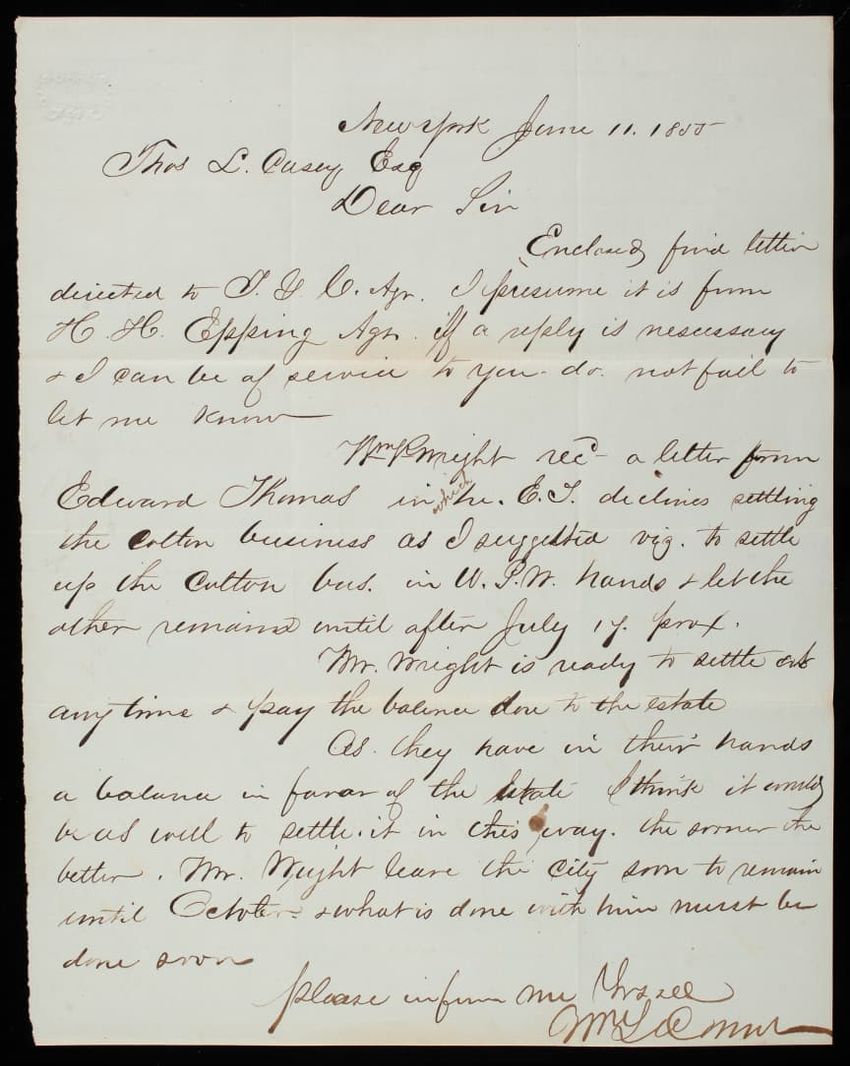 New York June 11. 1855
Thos L. Casey Esq
Dear Sir
Enclosed find letter
directed to T. G. C. Agr. I presume it is from
H. H. Epping Agr. if a reply is nesessary
& I can be of service to you do. not fail to
let me know
Wm P Wright recd a letter from
Edward Thomas in which he. E. T. declines settling
the cotton business as I suggested viz. to settle
up the cotton bus. in W. P. W. hands & let the
other remains until after July 17. prox.
Mr. Wright is ready to settle at
any time & pay the balance due to the estate
As. they have in their hands
a balance in favor of the estate I think it would
be as well to settle. it in this way. the sooner the
better. Mr. Wright leave the city soon to remain
until October & what is done with him must be
done soon
please inform me Yrs
Wm L